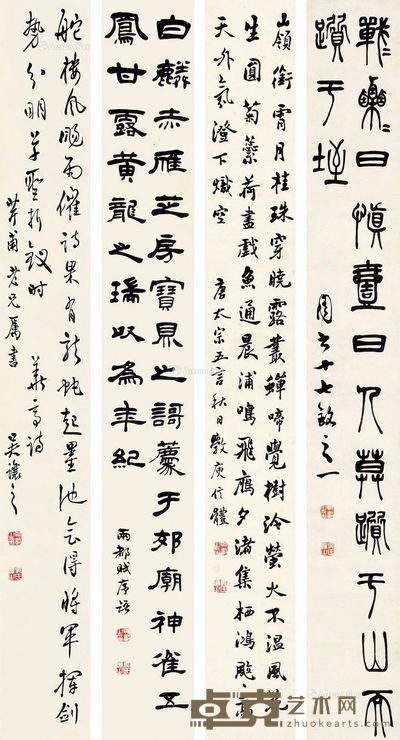 戰=栗=曰慎壹日人莫躓于山而
躓于垤
山嶺銜霄月桂珠穿曉露叢蟬啼覺樹冷螢火不溫風花
生圓菊蕊荷盡戲魚通晨浦鳴飛鴈夕渚集棲鴻颸=高
天外氣澄下熾空 唐太宗五言秋日斅庾信體
白麟赤雁芝房寶鼎之謌薦于郊廟神雀五
鳳甘露黃龍之瑞以為年紀
兩都賦序語
舵樓風颭雨催詩果有龍蛇起墨池乞得將軍揮劍
勢分明草聖折釵時 華亭詩
甫老兄屬書 吳讓之
卓克艺术网
zhuokearts.com